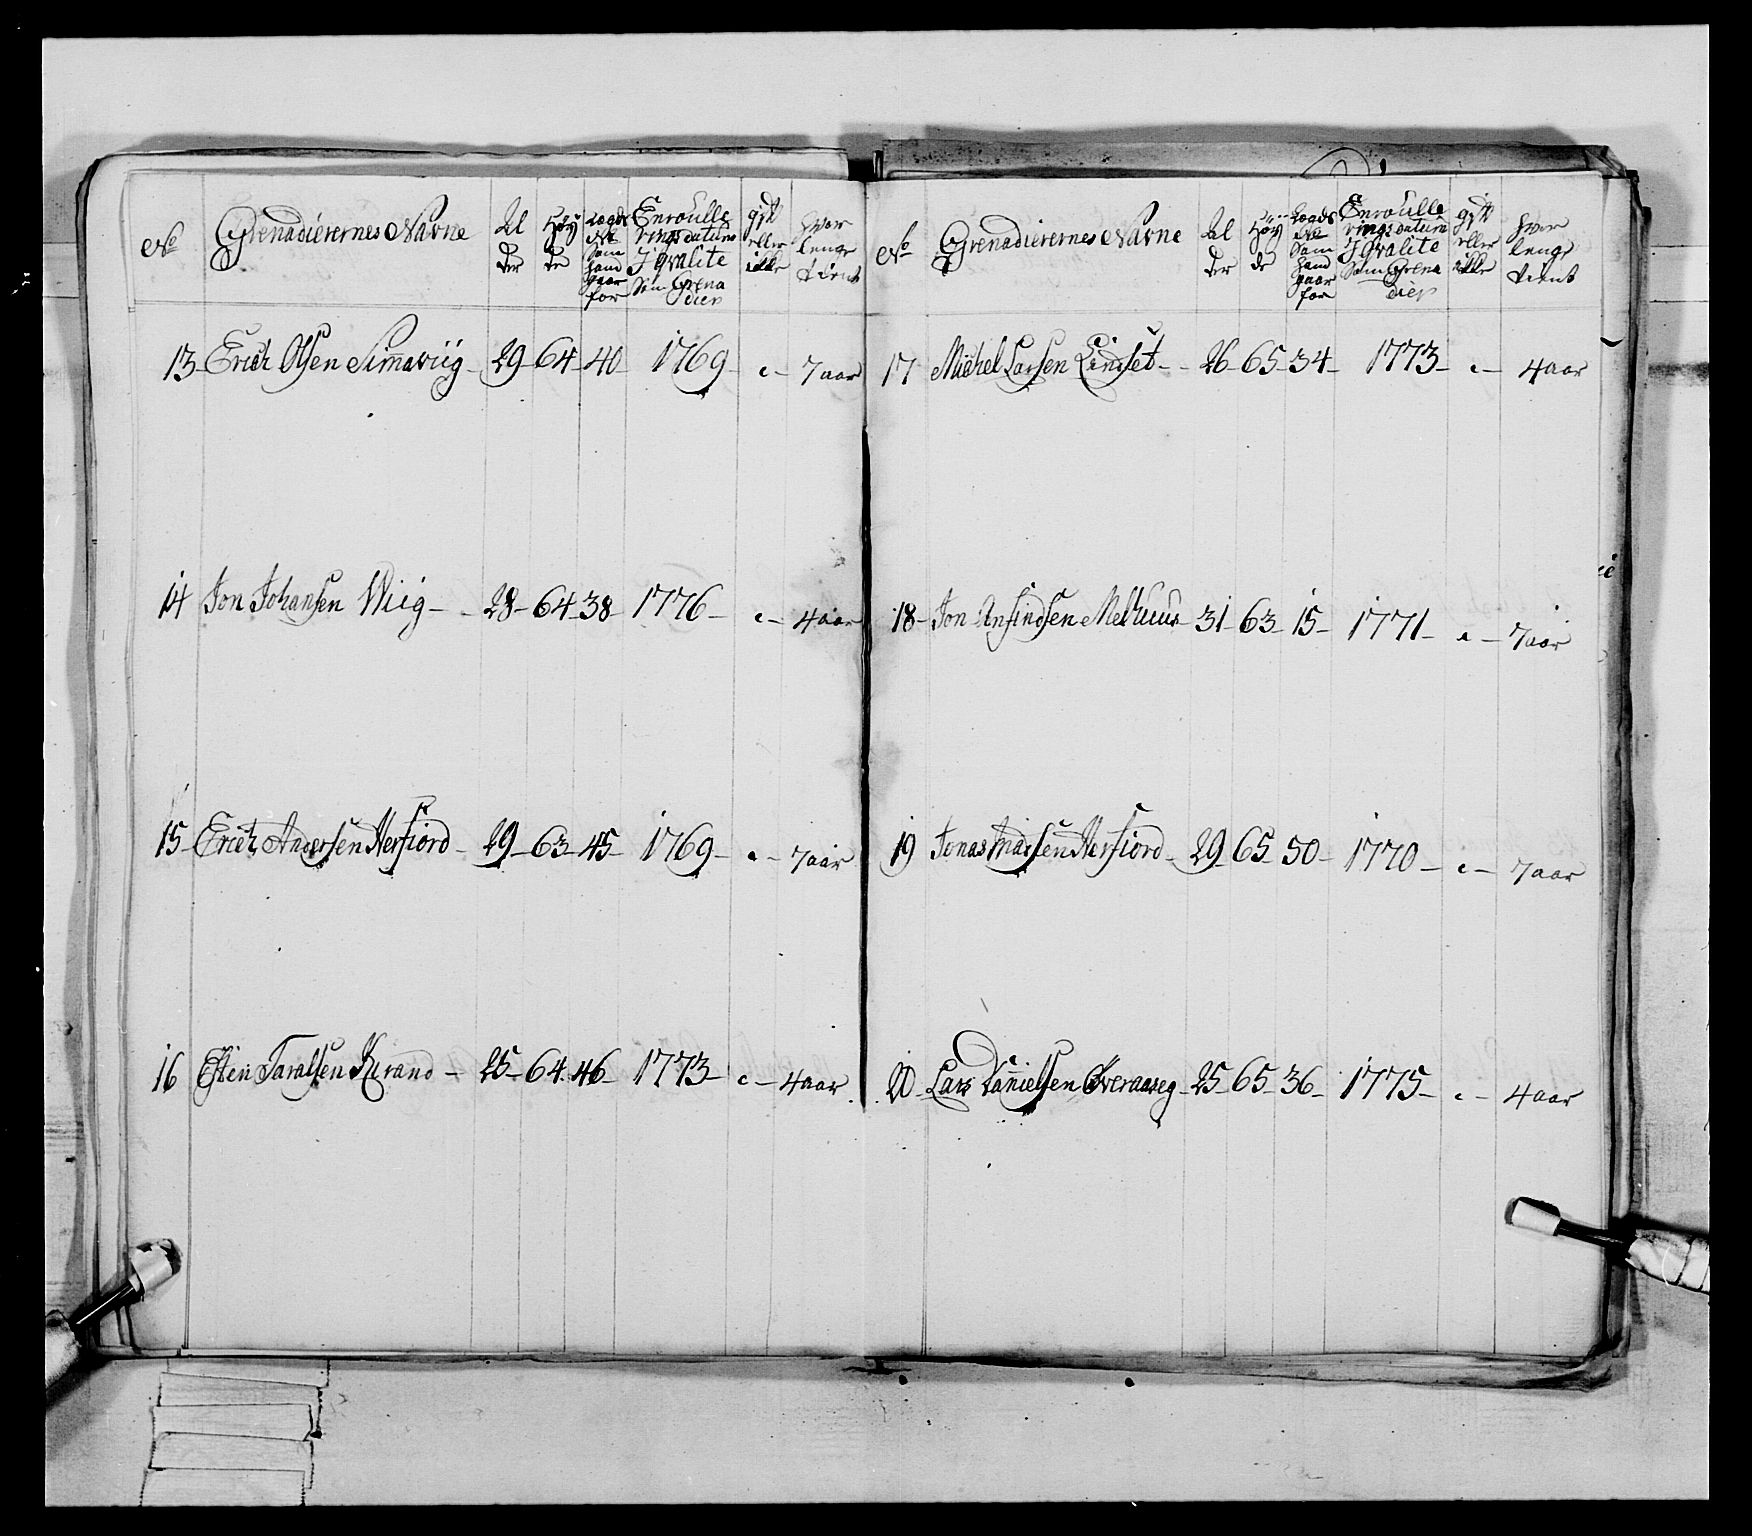 No Grenadierernes Navne Al der Höy de Lægds No Som hand gaar for Enroulle rings datum I qvalite Som Grena dier gift eller ikke hvor lenge tient
13 Erich Olsen Simawiig 29 64 40 1769 e 7 aar
14 Jon Johansen Wiig 28 64 38 1776 e 4 aar
15 Erich Andersen Herfiord 29 63 45 1769 e 7 aar
16 Esten Taralsen Kurand 25 64 46 1773 e 4 aar
No Grenadierernes Navne Al der Höy de Lægds No Som hand gaar for Enroulle rings datum I qvalite Som Grena dier gift eller ikke hvor lenge tient
17 Michel Larsen Lindset 26 65 34 1773 e 4 aar
18 Jon Anfindsen Melhuus 31 63 15 1771 e 7 aar
19 Jonas Herfiord 29 65 50 1770 e 7 aar
20 Lars Danielsen 25 65 36 1775 e 4 aar